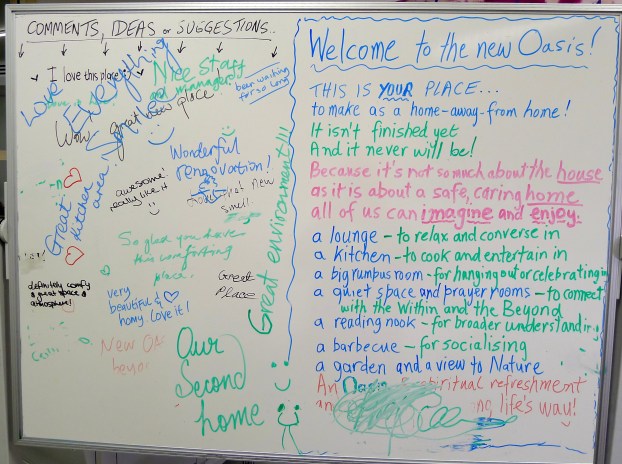 COMMENTS, IDEAS or SUGGESTIONS...
I love this place
Love Everything
Nice staff
and manager
been waiting
for so long
Wow
great new place
Wonderful
renovation!
awesome!
really like it
new
smell!
Great
kitchen
area.
So glad you have
this comforting
place.
Great
Place
Great environment!!!
definitely comfy
& great space &
atmosphere!
very
beautiful &
homy Love it!
New
Our
Second
home
Welcome to the new Oasis!
THIS IS YOUR PLACE...
to make as a home-away-from home!
It isn't finished yet
And it never will be!
Because it's not so much about the house
as it is about a safe, caring home
all of us can imagine and enjoy.
a lounge - to relax and converse in
a kitchen - to cook and entertain in
a big rumpus room - for hanging out or celebrating in
a quiet space and prayer rooms - to connect
with the Within and the Beyond
a reading nook - for broader understanding
a barbecue - for socialising
a garden and a view to Nature
An Oasis spiritual refreshment
life's way!